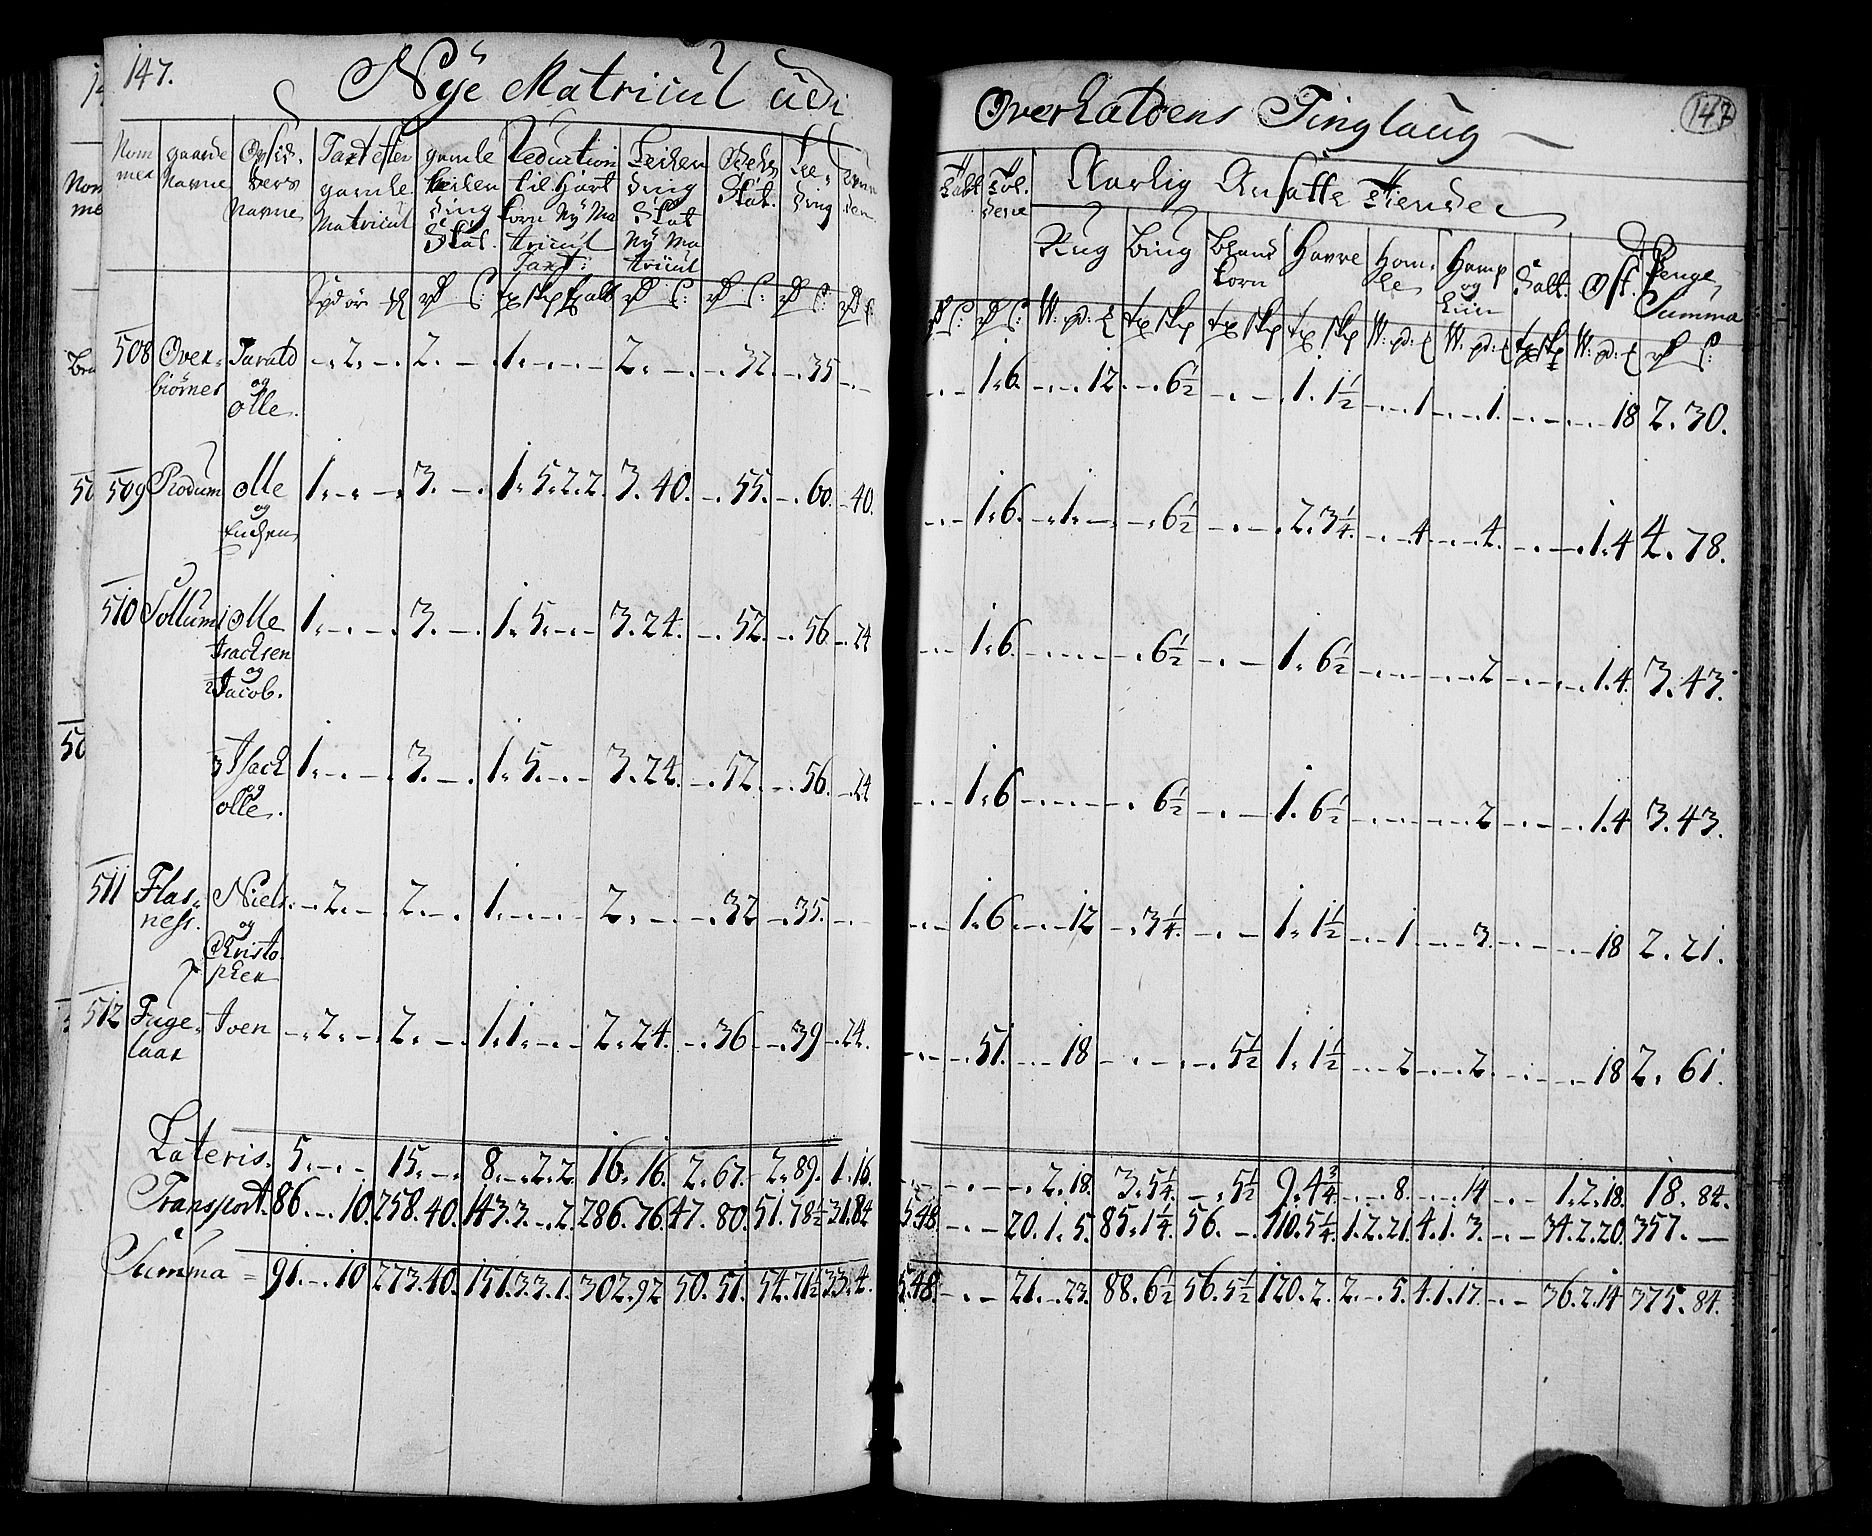 147.
Nÿe Matricul udi
Nom gaarde Opsid- Taxt efter gamle Reduction Leilen Schov Lee-
mer Navne ders gamle Leilen til Hart ding Skat. ding
Navne Matricul ding korn Nÿ Ma Skat
og tricul Nÿ Ma
Skat. Taxt: tricul
508 Over- Tarald -. 2. -. 2. - 1. -. -. - 2. - -. 32. -. 35 -. -
biørnes og
Olle.
509 Rodum Olle 1. -. - 3. -. 1. 5. 2. 2. 3. 40. -. 55. -. 60. - 40.
og
510 Sollum Olle 1. -. -. 3. -. 1. 5. -. - 3. 24. -. 52. -. 56 -. 24
Isachsen
og
½ Jacob.
Isach 1. -. - 3. -. 1. 5. -. - 3. 24. -. 52. -. 56. -. 24
og
Olle.
511 Flas- Niels -. 2. -. 2. -. 1. -. -. - 2. -. -. 32 -. 35. -.
ness. og
Christo
pher
512 Fuge- Iven -. 2. -. 2. -. 1. 1. -. - 2. 24. -. 36 -. 39 -. 24.
laar
Lateris. 5. -. - 15. -. 8. -. 2. 2 16. 16. 2. 67. 2. 89. 1. 16.
Transport. 86. -. 10. 258. 40. 143. 3. -. 2. 286. 76. 47. 80. 51. 78½ 31. 84
Summa = 91. -. 10 273. 40. 151. 3. 3. 1. 302. 92 50. 51. 54. 71½ 33. 4.
Overhaldens Tinglaug
147
Aarlig Ansatte Tiender
Rug Bÿg Bland Havre Hom- Hamp Salt. Ost. Penge
korn le og Summa
Liin
-. - 1. 6. -. -. 12. -. 6½ -. - 1. 1½ -. -. 1 -. -. 1. -. - -. -. 18 2. 30.
-. - 1. 6. -. 1. - -. 6½ -. - 2. 3¼. -. -. 4. -. -. 4. -. - -. 1. 4 4. 78.
-. - 1. 6. -. -. - -. 6½ -. - 1. 6½ -. -. - -. -. 2 -. - -. 1. 4. 3. 43.
-. - 1. 6 -. -. - -. 6½ -. - 1. 6½ -. -. - -. -. 2 -. - -. 1. 4 3. 43.
-. - 1. 6 -. -. 12 -. 3¼. -. - 1. 1½ -. -. 1 -. -. 3. -. - -. -. 18 2. 21.
-. - 51. -. -. 18 -. - -. 5½ 1. 1½ -. -. 2 -. -. 2. -. - -. -. 18 2. 61.
-. - -. - -. 2. 18. 3. 5¼ -. 5½ 9. 4¾ -. -. 8. -. -. 14 -. - 1. 2. 18. 18. 84.
5. 48. -. - 20. 1. 5. 85. 1¼ 56. -. 110. 5¼. 1. 2. 21. 4. 1. 3. -. - 34. 2. 20. 357. -
5. 48. -. - 21. -. 23. 88. 6½ 56. 5½ 120. 2. 2. -. 5. 4. 1. 17. -. - 36. 2. 14 375. 84.